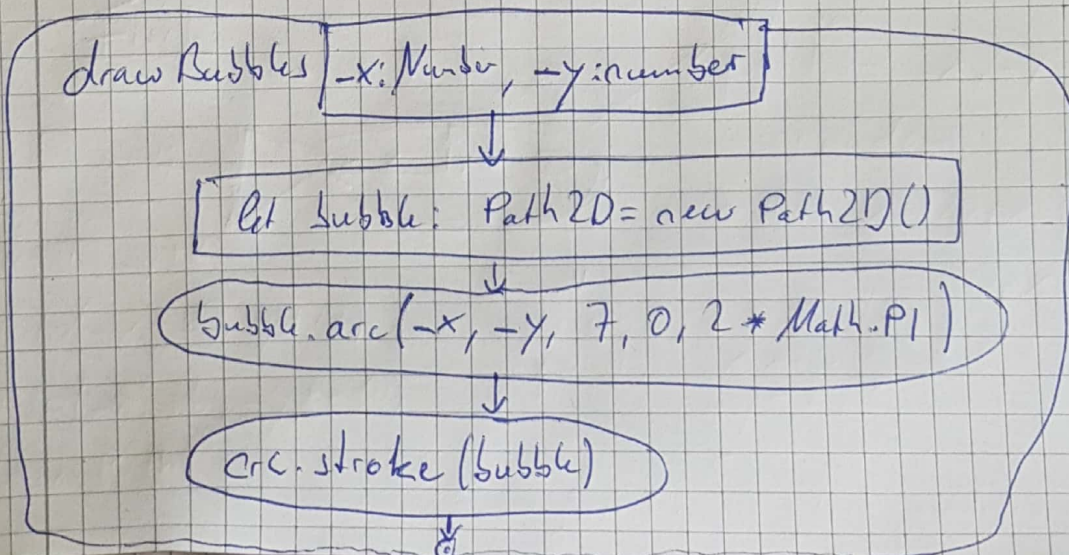 drawBubbles -x: Number, -y: number
let bubble: Path2D = new Path2D()
bubble.arc(-x, -y, 7, 0, 2 * Math.PI)
crc.stroke(bubble)